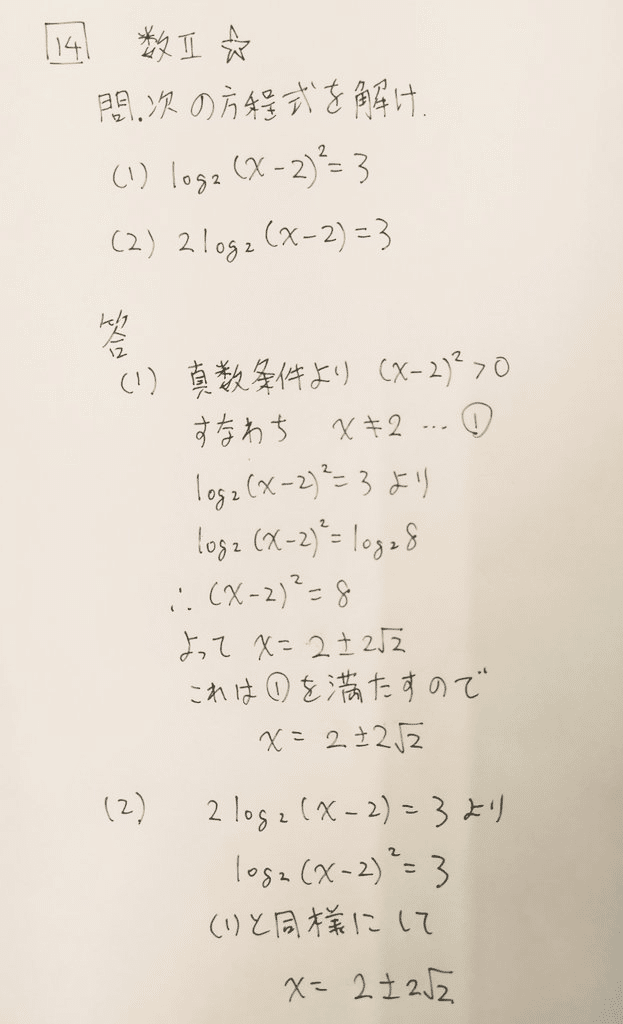 14 数Ⅱ ☆
問.次の方程式を解け.
(1) log₂(x-2)²=3
(2) 2log₂(x-2)=3
答
(1) 真数条件より (x-2)²>0
すなわち x≠2 … ①
log₂(x-2)²=3 より
log₂(x-2)²=log₂8
∴ (x-2)²=8
よって x=2±2√2
これは①を満たすので
x=2±2√2
(2) 2log₂(x-2)=3 より
log₂(x-2)²=3
(1)と同様にして
x=2±2√2